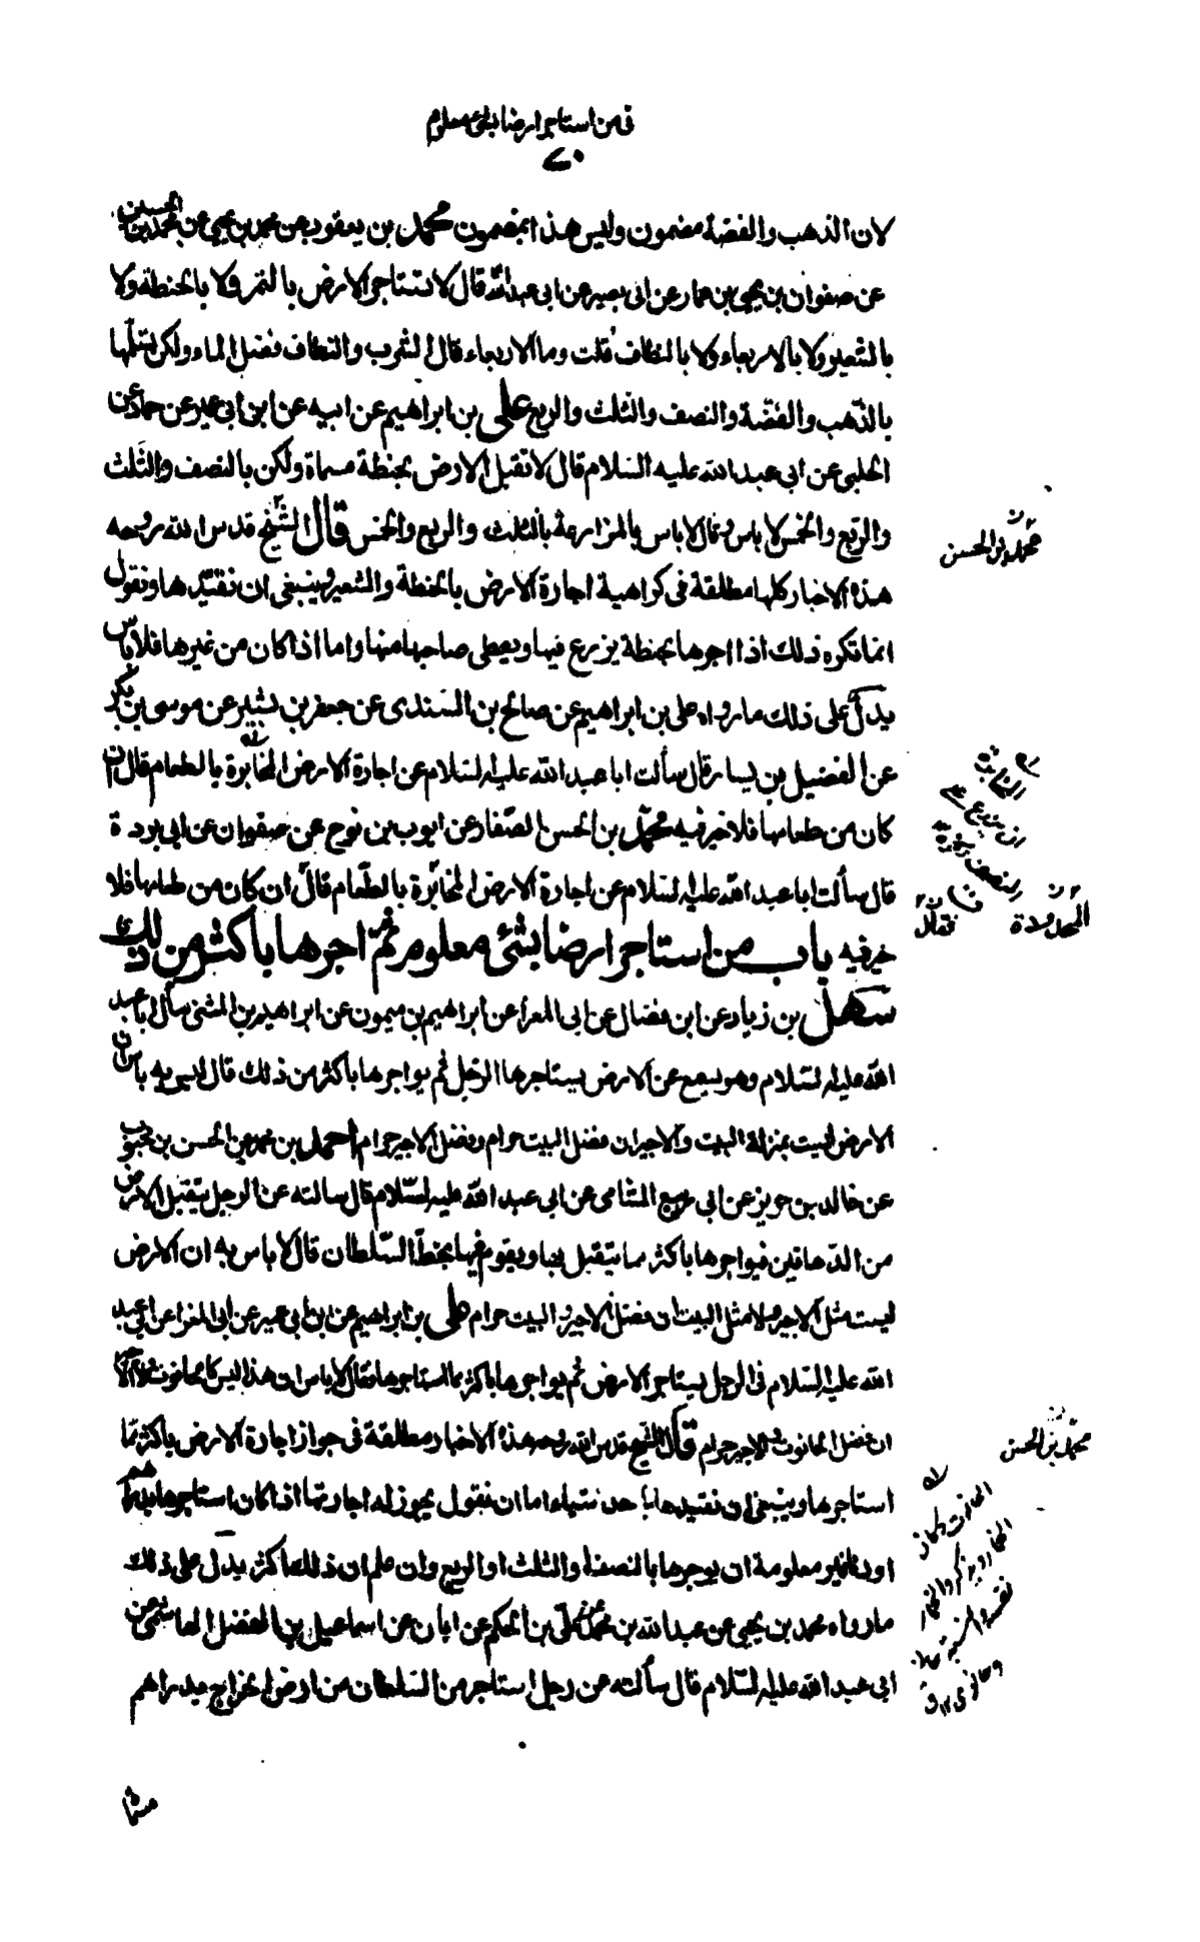 فى من استاجر ارضا بشئ معلوم
لان الذهب والفضة مضمون وليس هذا بمضمون محمد بن يعقوب عن محمد بن يحيى عن محمد بن الحسين
عن صفوان بن يحيى بن عمار عن ابى بصير عن ابى عبد الله قال لا تستاجر الارض بالتمر ولا بالحنطة ولا
بالشعير ولا بالاربعاء ولا بالنطاف قلت وما الاربعاء قال الشرب والنطاف فضل الماء ولكن تقبلها
بالذهب والفضة والنصف والثلث والربع على بن ابراهيم عن ابيه عن ابن ابى عمير عن حماد عن
الحلبى عن ابى عبد الله عليه السلام قال لا تقبل الارض بحنطة مسماة ولكن بالنصف والثلث
والربع والخمس لا باس وقال لا باس بالمزارعة بالثلث والربع والخمس قال الشيخ قدس الله روحه
محمد بن الحسن
هذه الاخبار كلها مطلقة فى كراهية اجارة الارض بالحنطة والشعير وينبغى ان نقيدها ونقول
انما نكره ذلك اذا اجرها بحنطة يزرع فيها ويعطى صاحبها منها واما اذا كان من غيرها فلا باس
يدل على ذلك ما رواه على بن ابراهيم عن صالح بن السندى عن جعفر بن بشير عن موسى بن بكر
عن الفضيل بن يسار قال سألت ابا عبد الله عليه السلام عن اجارة الارض المخابرة بالطعام قال ان
كان من طعامها فلا خير فيه محمد بن الحسن الصفار عن ايوب بن نوح عن صفوان عن ابى بردة
قال سألت ابا عبد الله عليه السلام عن اجارة الارض المخابرة بالطعام قال ان كان من طعامها فلا
المحدودة فقال
خير فيه باب من استاجر ارضا بشئ معلوم ثم اجرها باكثر من ذلك
سهل بن زياد عن ابن فضال عن ابى المعزا عن ابراهيم بن ميمون عن ابراهيم بن المثنى سأل ابا عبد
الله عليه السلام وهو يسمع عن الارض يستاجرها الرجل ثم يواجرها باكثر من ذلك قال ليس به باس ان
الارض ليست بمنزلة البيت والاجير ان فضل البيت حرام وفضل الاجير حرام احمد بن محمد عن الحسن بن محبوب
عن خالد بن جرير عن ابى ربيع الشامى عن ابى عبد الله عليه السلام قال سالته عن الرجل يتقبل الارض
من الدهاقين فيواجرها باكثر مما يتقبل بها ويقوم فيها بحظ السلطان قال لا باس به ان الارض
ليست مثل الاجير ولا مثل البيت ان فضل الاجير والبيت حرام على بن ابراهيم عن ابن ابى عمير عن ابى المغرا عن ابى عبد
الله عليه السلام فى الرجل يستاجر الارض ثم يواجرها باكثر مما استاجرها فقال لا باس ان هذا ليس كالحانوت ولا الاجير
ان فضل الحانوت والاجير حرام قال الشيخ قدس الله روحه هذه الاخبار مطلقة فى جواز اجارة الارض باكثر مما
محمد بن الحسن
استاجرها وينبغى ان نقيدها باحد اشياء اما ان نقول يجوز له اجارتها اذا كان استاجرها بدراهم
او دنانير معلومة ان يوجرها بالنصف او الثلث او الربع وان علم ان ذلك اكثر يدل على ذلك
ما رواه محمد بن يحيى عن عبد الله بن محمد عن على بن الحكم عن ابان عن اسماعيل بن الفضل الهاشمى عن
ابى عبد الله عليه السلام قال سألته عن رجل استاجر من السلطان من ارض الخراج بدراهم